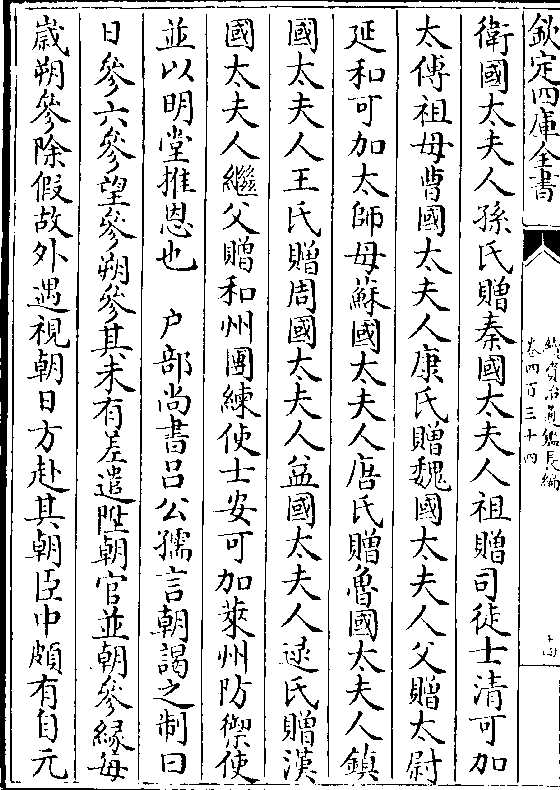 欽定四庫全書
續資治通鑑長編
卷四百三十四
十四
衛國太夫人孫氏贈秦國太夫人祖贈司徒士清可加
太傅祖母曹國太夫人康氏贈魏國太夫人父贈太尉
延和可加太師母蘇國太夫人唐氏贈魯國太夫人鎮
國太夫人王氏贈周國太夫人益國太夫人逯氏贈漢
國太夫人繼父贈和州團練使士安可加萊州防禦使
並以明堂推恩也 户部尚書吕公孺言朝謁之制曰
日參六參望參朔參其未有差遣陞朝官並朝參緣每
嵗朔參除假故外遇視朝日方赴其朝臣中頗有自元